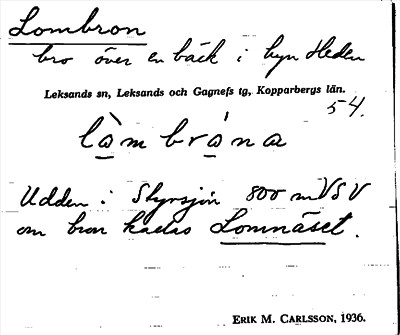 Lombron
bro över en bäck i byn Heden
Leksands sn, Leksands och Gagnefs tg, Kopparbergs län.
54.
lå̱̀m brǻ̱na
Udden i Styrsjön 800 m VSV
om bron kallas Lomnäset.
ERIK M. CARLSSON, 1936.